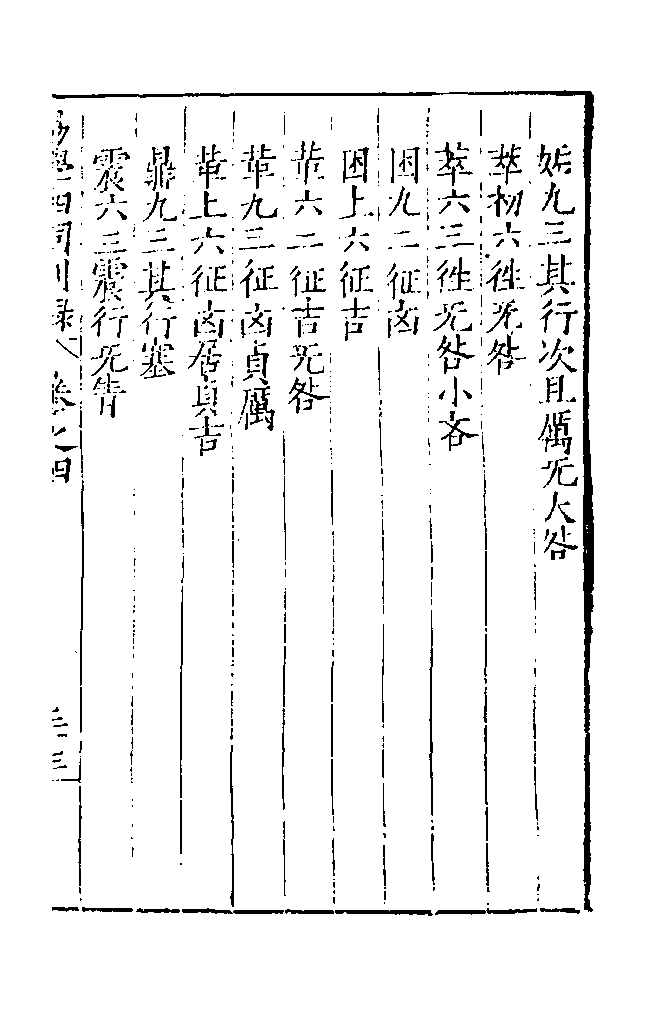 姤九三其行次且厲无大咎
萃初六往无咎
萃六三往无咎小吝
困九二征凶
困上六征吉
革六二征吉无咎
革九三征凶貞厲
革上六征凶居貞吉
鼎九三其行塞
震六三震行无眚
易學四同別錄 卷之四
三十三